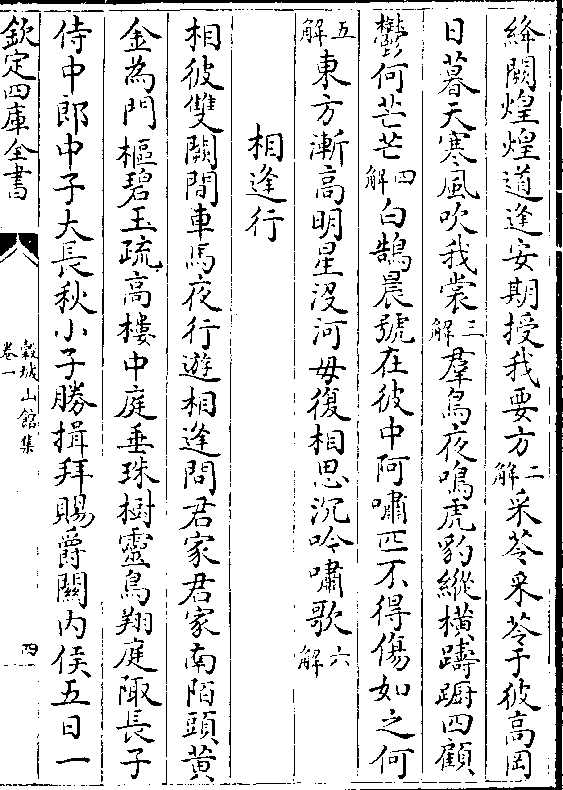 絳闕煌煌道逢安期授我要方二解采苓采苓于彼高岡
日暮天寒風吹我裳三解羣鳥夜鳴虎豹縱横躊蹰四顧
鬱何芒芒四解白鵠晨號在彼中阿嘯匹不得傷如之何
五解東方漸高明星沒河毋復相思沉吟嘯歌六解
相逢行
相彼雙闕間車馬夜行遊相逢問君家君家南陌頭黄
金為門樞碧玉疏高樓中庭垂珠樹靈鳥翔庭陬長子
侍中郎中子大長秋小子勝揖拜賜爵關内侯五日一
欽定四庫全書
榖城山館集
卷一
四